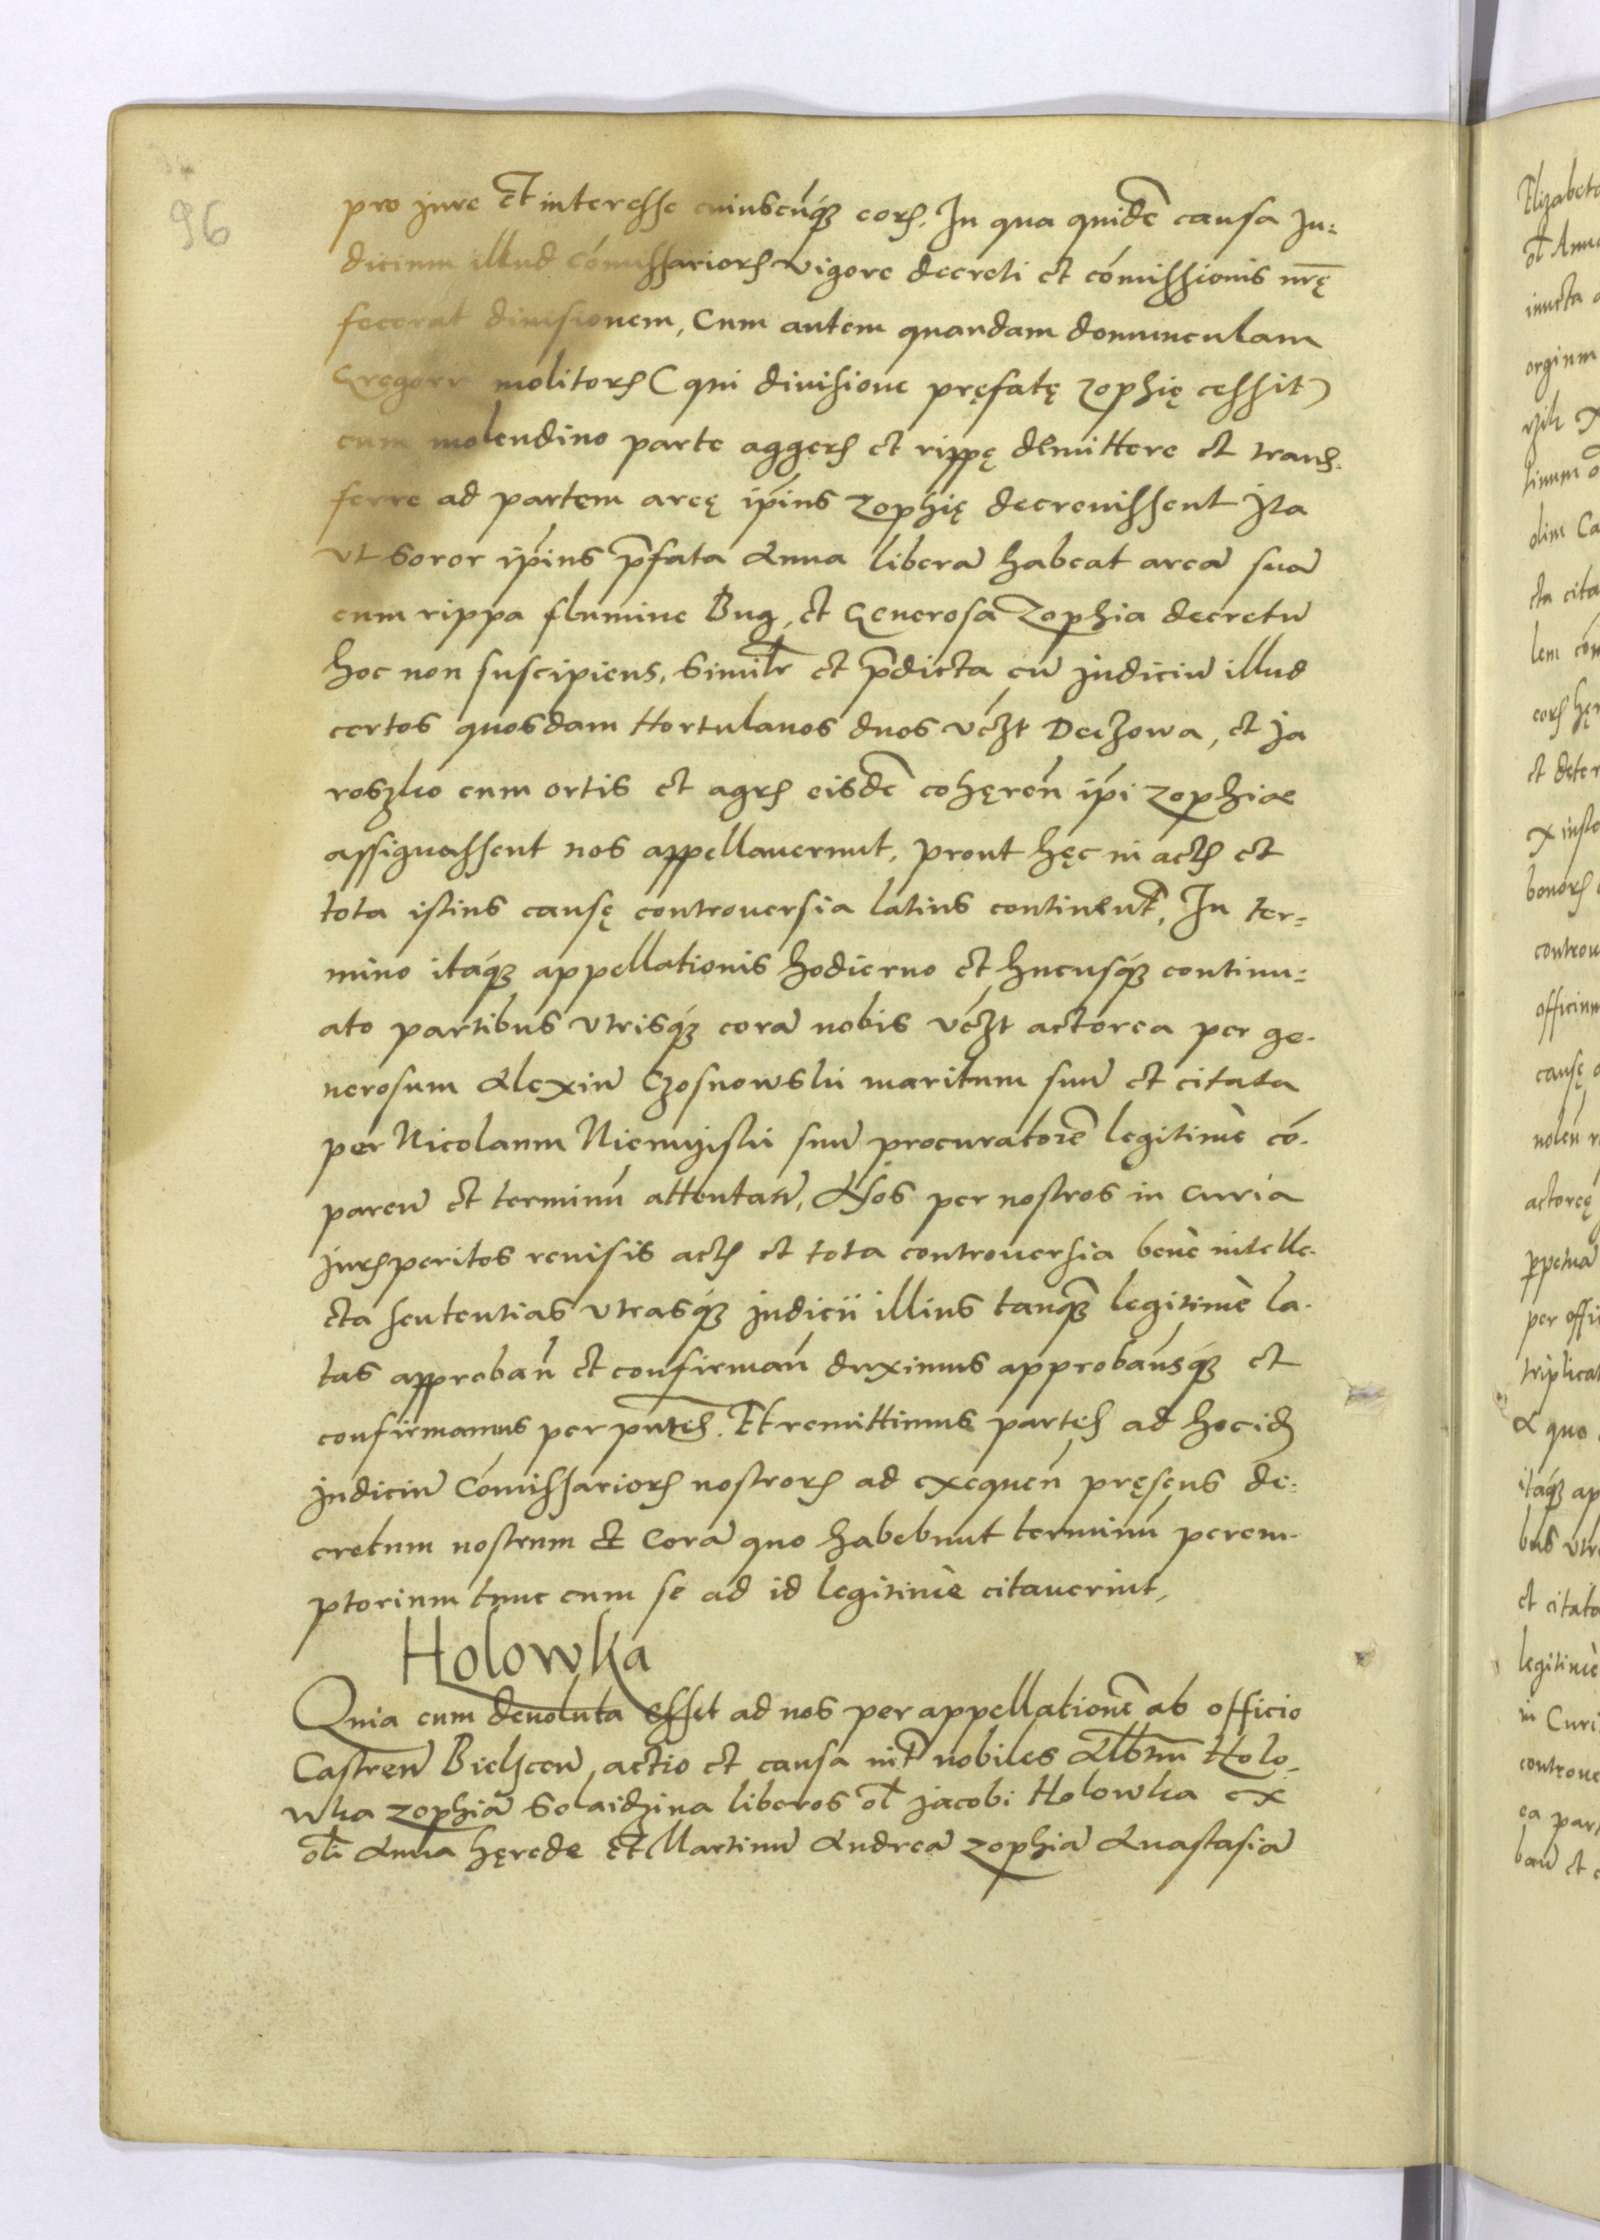 96
pro jure Et interesse cuiuscūq3 eorꝝ. In qua quidē causa Ju=
dicium illud Cōmissariorꝝ vigore decreti et cōmissionis nr̄ę
fecerat divisionem, Cum autem quandam domunculam
Gregorii molitorꝝ (qui divisione pręfatę Zophię cessit)
cum molendino parte aggerꝝ et rippę dēmittere et trans-
ferre ad partem areę ip̄ius Zophię decrevissent Ita
vt soror ip̄ius p̄fata Anna liberā habeat areā suā
cum rippa flumine Bug, et Generosa Zophia decretū
hoc non suscipiens, Simil̄r et p̄dicta cū Judiciū illud
certos quosdam Hortulanos duos vcz̄t Deczowa, et Ja
roszko cum ortis et agrꝭ eisdē cohęreń ip̄i Zophiae
assignassent nos appellaverunt, prout hęc in actꝭ et
tota istius causę controversia latius continent̄, In ter=
mino itaq3 appellationis hodierno et hucusq3 continu=
ato partibus vtrisq3 corā nobis vcz̄t actorea per ge-
nerosum Alexiū Czosnowski maritum suū et citata
per Nicolaum Niemyiski suū procuratorē legitimè cō-
pareń et terminū attentań, Nos per nostros in Curia
Jurꝭperitos revisis actꝭ et tota controversia benè intelle-
cta sententias vtrasq3 Judicii illius tanq̄ legitimè la-
tas approbań et confirmań duximus approbamusq3 et
confirmamus per pnt̄es. Et remittimus partes ad hoc id
Judiciū Cōmissariorꝝ nostrorꝝ ad exequeń pręsens de=
cretum nostrum Et Corā quo habebunt terminū perem-
ptorium tunc cum se ad id legitimè citaverint,
Holowka
Quia cum devoluta esset ad nos per appellationē ab officio
Castreń Bielsceń, actio et causa int̄ nobiles Alb̄tum Holo-
wka Zophiā Solaidzina liberos ol̄ Jacobi Holowka ex
ol̄i Anna hęrede Et Martinū Andreā Zophiā Anastasiā